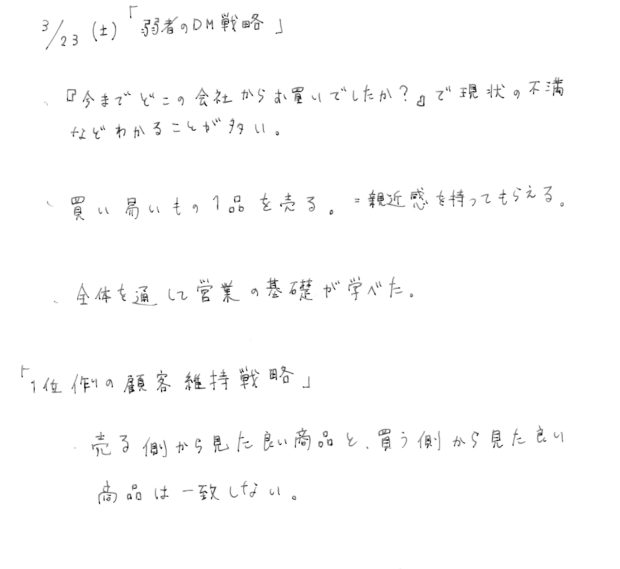 3/23(土)「弱者のDM戦略」
、『今までどこの会社からお買いでしたか?』で現状の不満
などわかることが多い。
、買い易いもの1品を売る。=親近感を持ってもらえる。
、全体を通して営業の基礎が学べた。
「1位作りの顧客維持戦略」
・売る側から見た良い商品と、買う側から見た良い
商品は一致しない。